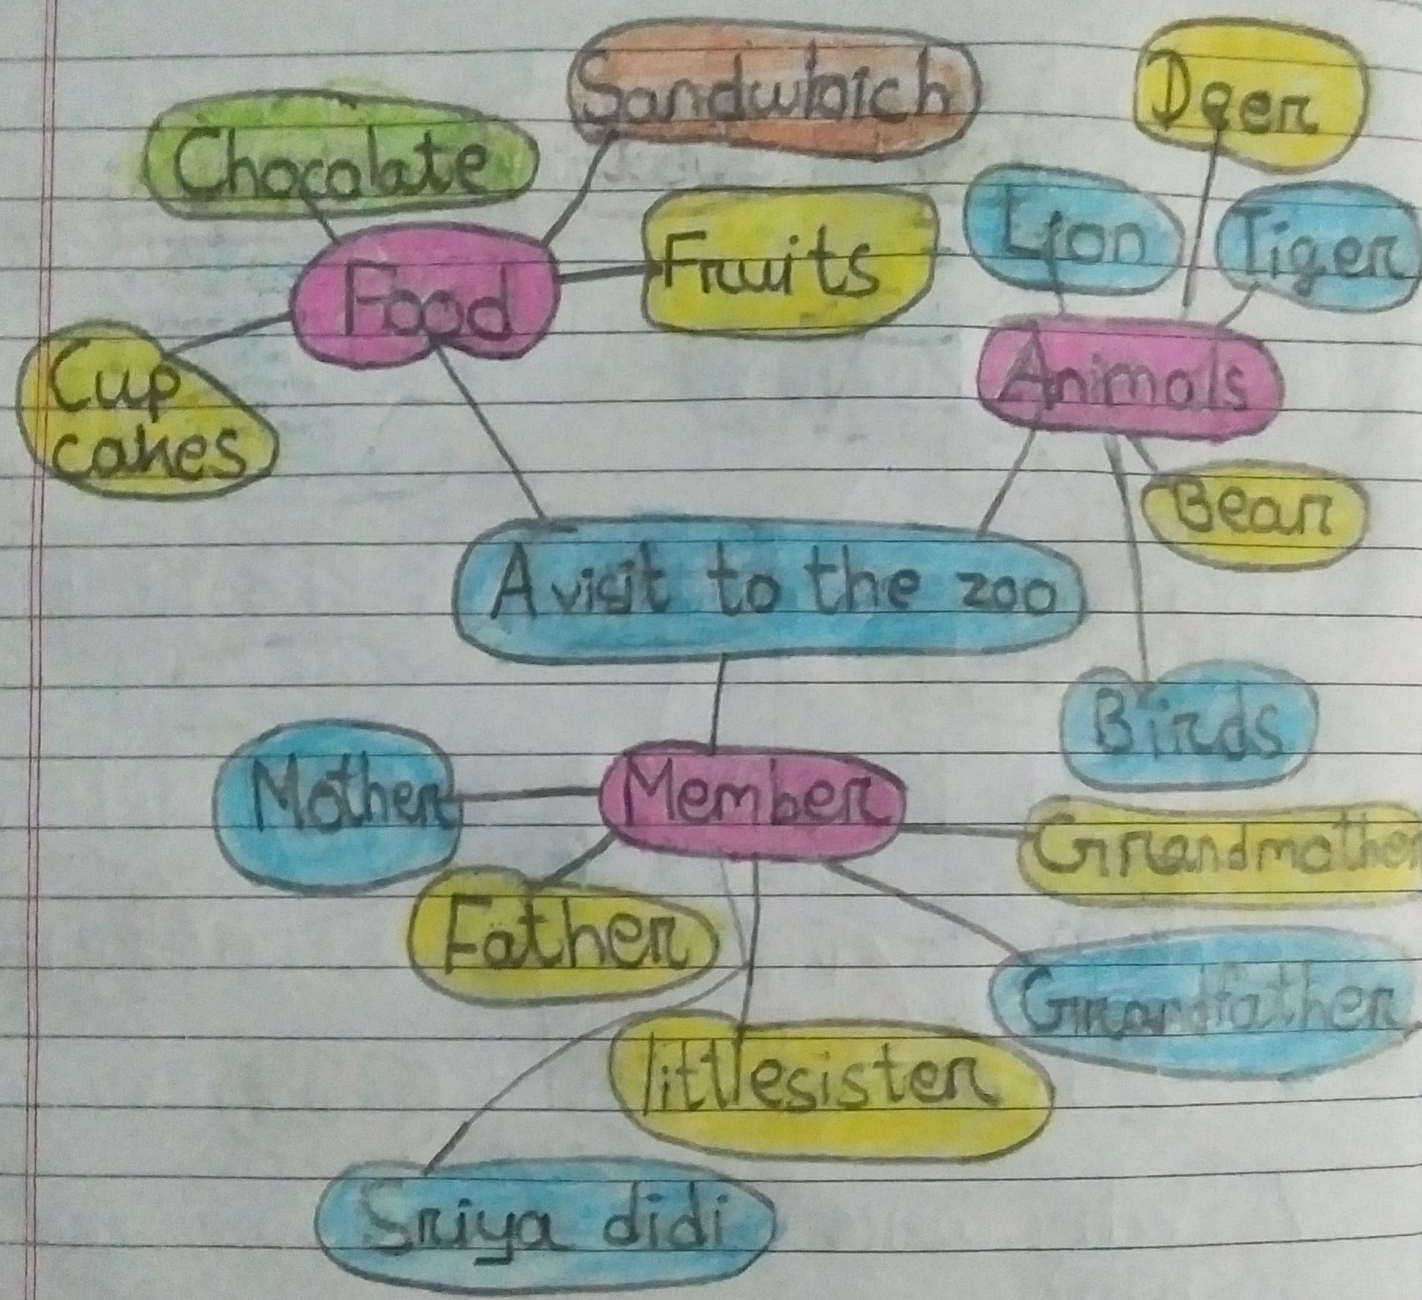 Sandwhich
Deer
Chocolate
Lion
Tiger
Fruits
Food
Animals
Cup
cakes
Bear
A visit to the zoo
Birds
Mother
Member
Grandmother
Father
Grandfather
littlesister
Sriya didi